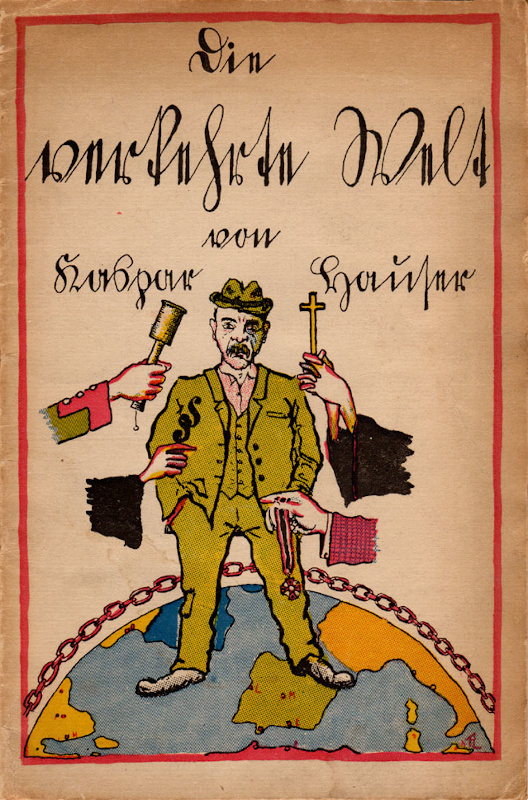 Die
verkehrte Welt
von
Kaspar Hauser
§